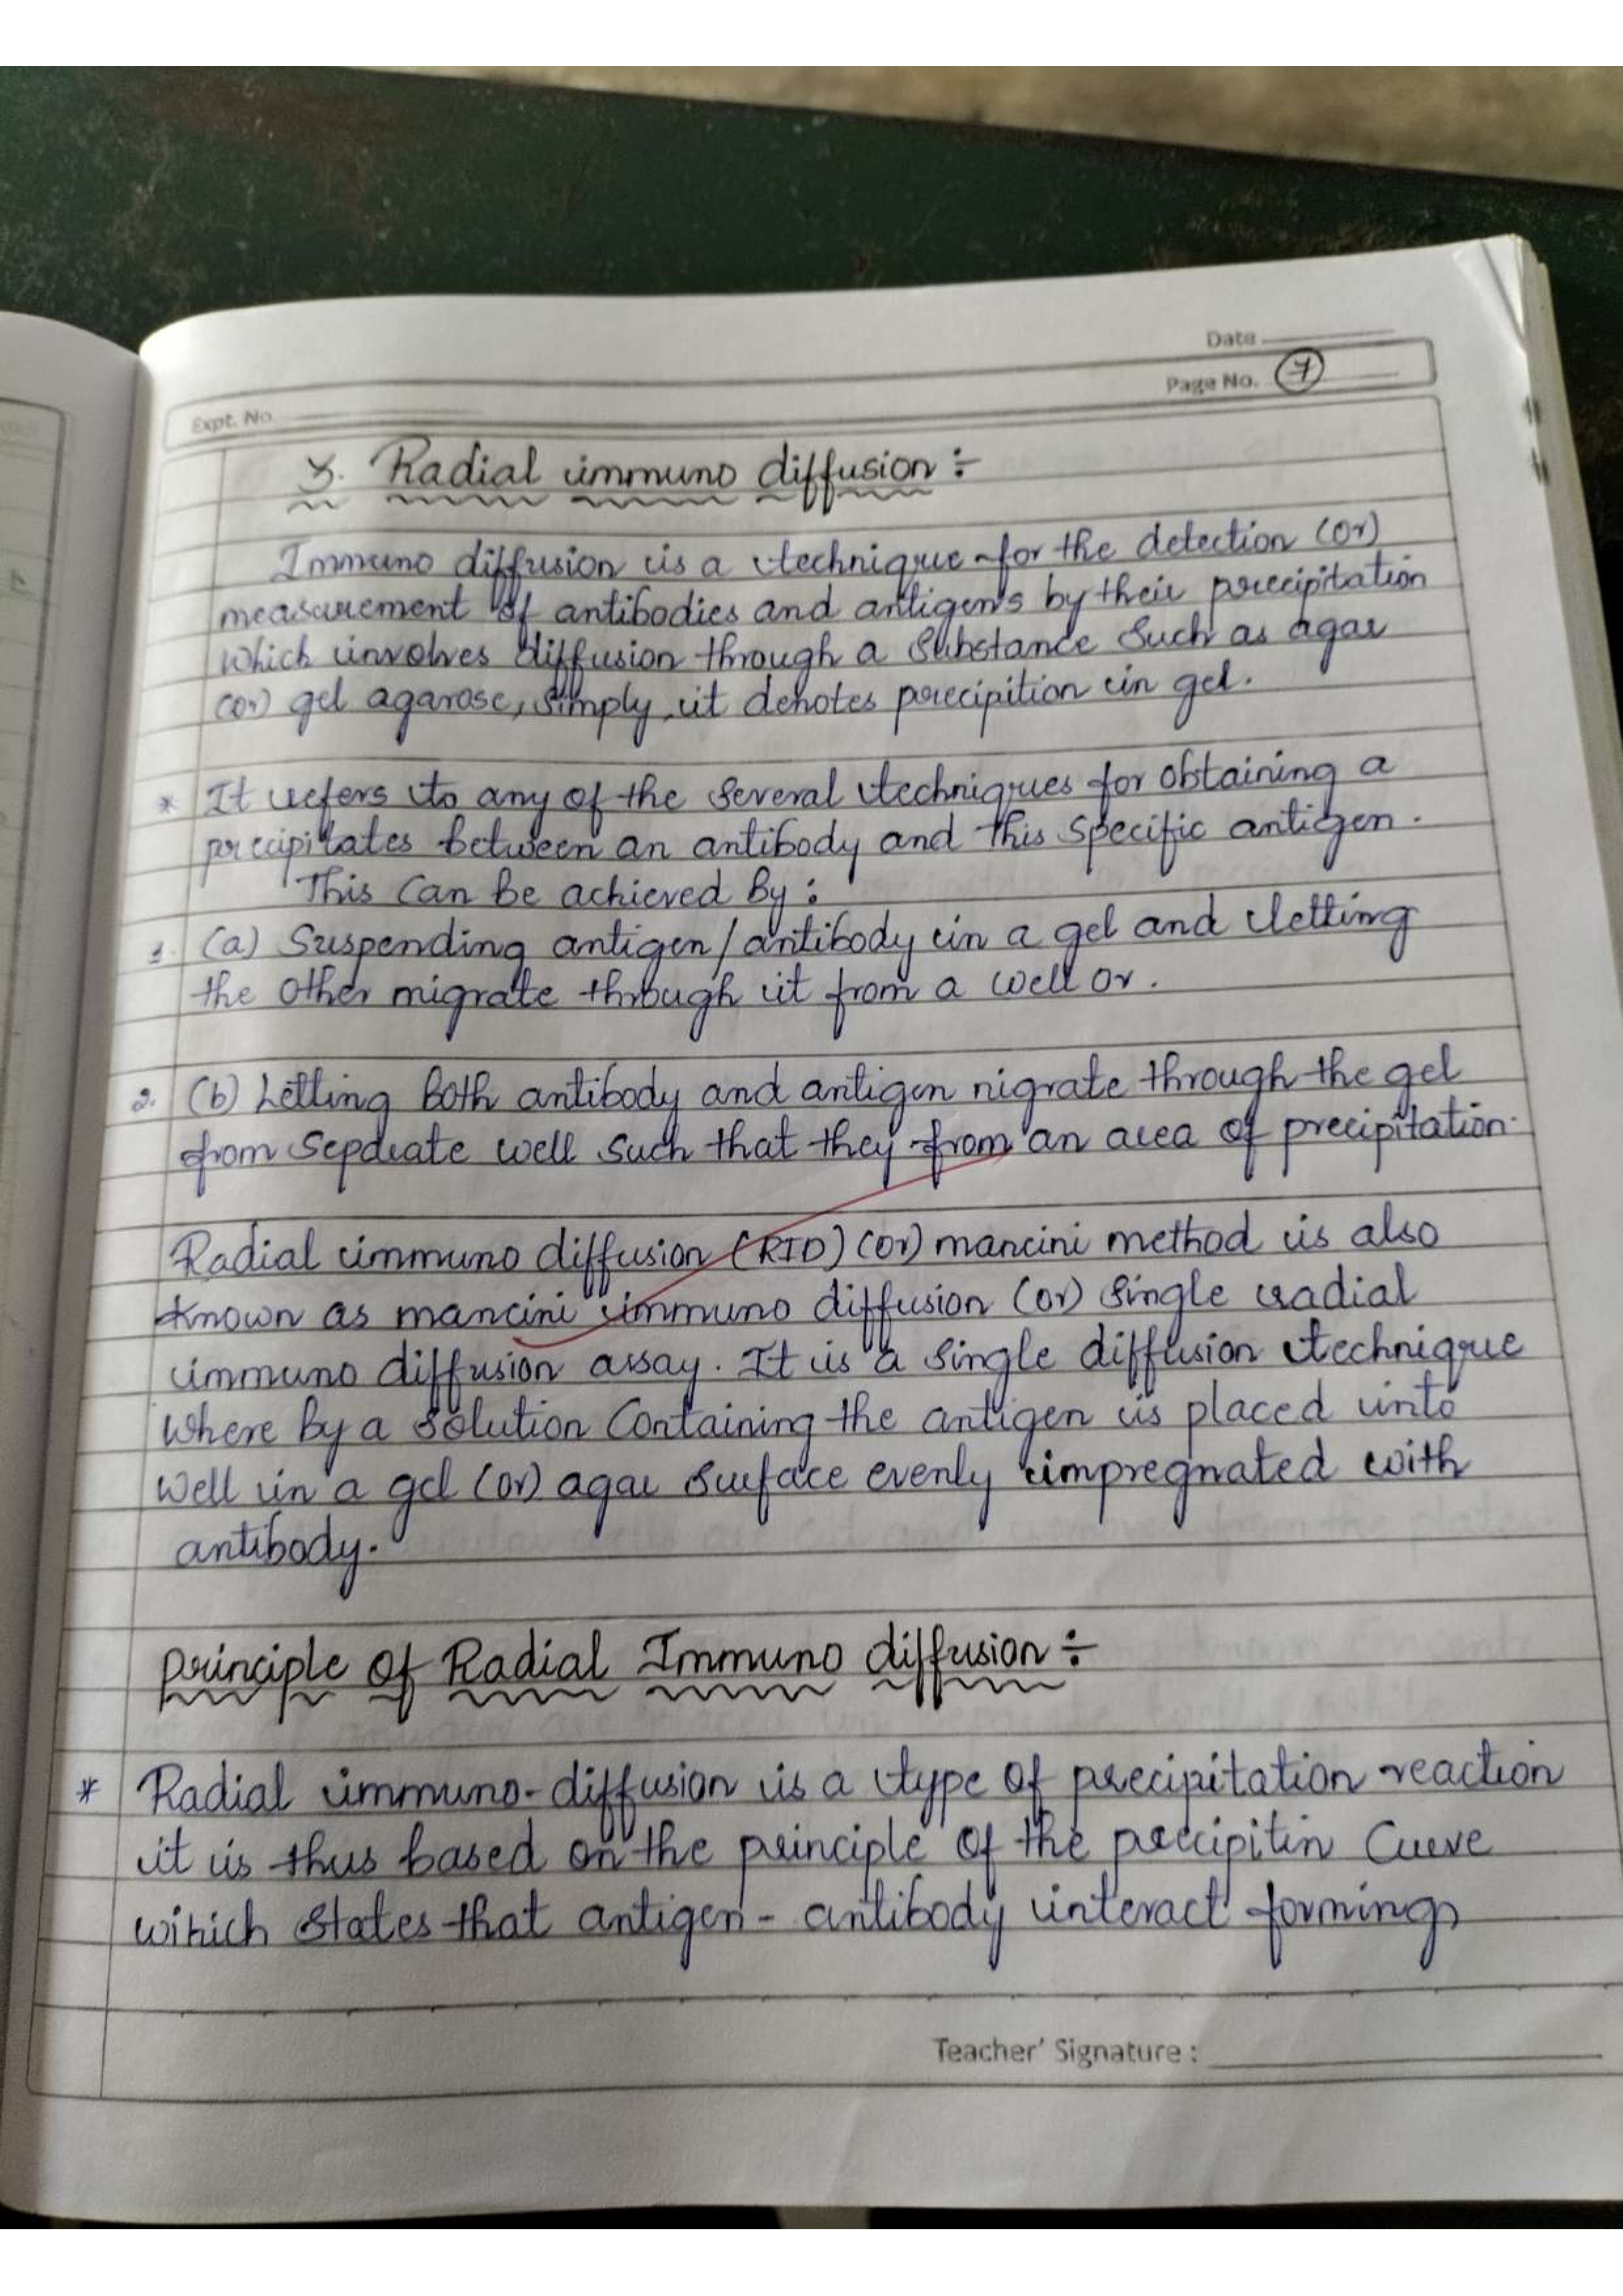 Date
Page No. 7
Expt. No.
3. Radial immuno diffusion :-
Immuno diffusion is a technique for the detection (or)
measurement of antibodies and antigens by their precipitation
which involves diffusion through a Substance Such as agar
(or) gel agarose, simply, it denotes precipition in gel.
* It refers to any of the Several techniques for obtaining a
precipitates between an antibody and this specific antigen.
This Can be achieved by :
1. (a) Suspending antigen/antibody in a gel and letting
the other migrate through it from a well or.
2. (b) Letting both antibody and antigen nigrate through the gel
from Sepdrate well such that they from an area of precipitation.
Radial immuno diffusion (RID) (or) mancini method is also
known as mancini immuno diffusion (or) Single radial
immuno diffusion assay. It is a single diffusion technique
where by a solution Containing the antigen is placed into
well in a gel (or) agar surface evenly impregnated with
antibody.
principle of Radial Immuno diffusion :-
* Radial immuno-diffusion is a type of precipitation reaction
it is thus based on the principle of the precipitin Curve
wihich states that antigen - antibody interact forming
Teacher' Signature :